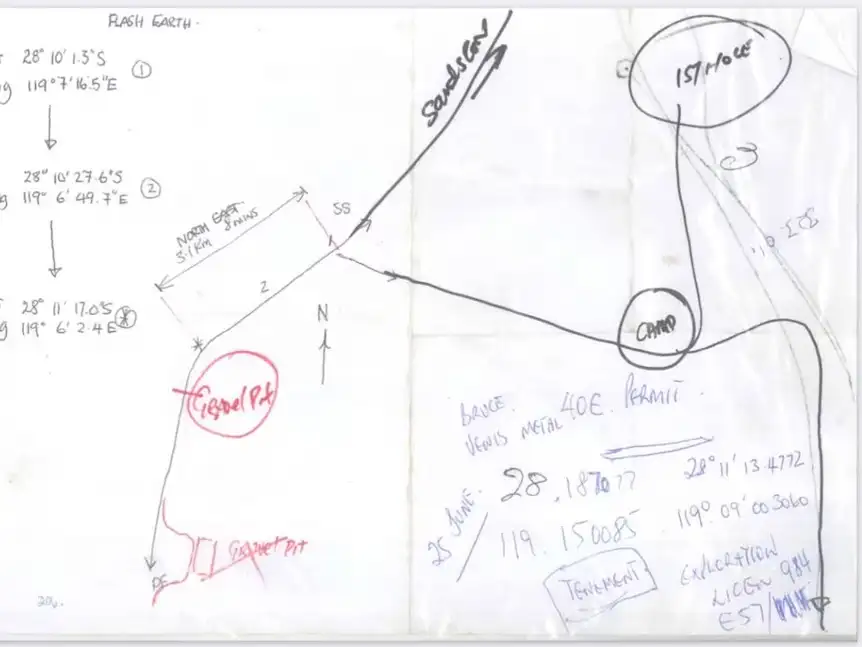 FLASH EARTH.
28° 10' 1.3"S
119° 7' 16.5"E
1
28° 10' 27.6"S
119° 6' 49.7"E
2
28° 11' 17.0"S
119° 6' 2.4 E"
*
NORTH EAST
3.1 KM 8 MINS
SS
2
1
*
N
Sandston
1ST HOLE
CAMP
Gravel Pit
Gravel Pit
BRUCE.
VENUS METAL 40E. PERMIT.
25 JUNE.
28.187077
28° 11' 13.4772
119.150085
119° 09' 00 3060
TENEMENT
EXPLORATION
LICEN 984
E57/